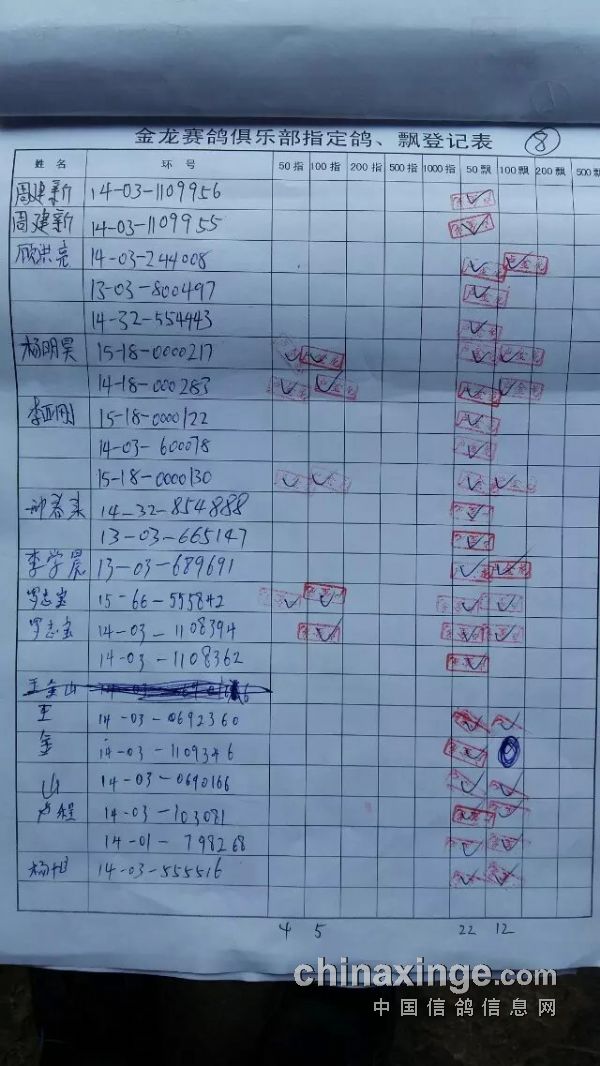 金龙赛鸽俱乐部指定鸽、飘登记表 ⑧
姓名 环号 50指 100指 200指 500指 1000指 50飘 100飘 200飘 500飘
周建新 14-03-1109956 ✓
周建新 14-03-1109955 ✓
顾洪亮 14-03-244008 ✓ ✓
13-03-800497 ✓
14-32-554443 ✓
杨明昊 15-18-0000217 ✓ ✓ ✓ ✓
14-18-000283 ✓ ✓ ✓ ✓
李亚刚 15-18-0000122 ✓
14-03-600078 ✓
15-18-0000130 ✓ ✓ ✓ ✓
14-32-854888 ✓
13-03-665147 ✓
李学晨 13-03-689691 ✓ ✓
罗志宝 15-66-555842 ✓ ✓ ✓ ✓
罗志宝 14-03-1108394 ✓ ✓ ✓
14-03-1108362 ✓
王金山
王 14-03-0692360 ✓ ✓
金 14-03-1109346 ✓
山 14-03-0690166 ✓ ✓
卢程 14-03-103081 ✓ ✓
14-01-798268 ✓ ✓
杨旭 14-03-555516 ✓ ✓
4 5 22 12
chinaxinge.com
中国信鸽信息网